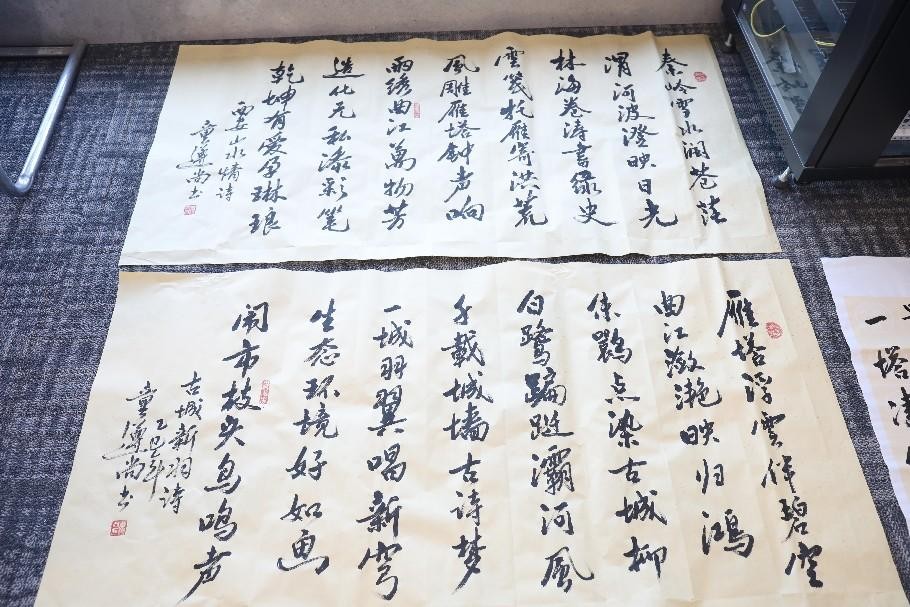 秦岭雪水润苍茫
渭河波澄映日光
林海卷涛书绿史
云裳托雁寄洪荒
风雕雁塔钟声响
雨绣曲江万物芳
造化无私添彩笔
乾坤有爱孕琳琅
西安山水情诗
童遵尚书
雁塔浮云伴碧空
曲江潋滟映归鸿
朱鹮点染古城柳
白鹭蹁跹灞河风
千载城墙古诗梦
一城羽翼唱新穹
生态环境好如画
闹市枝头鸟鸣声
古城新羽诗
乙巳年
童遵尚书